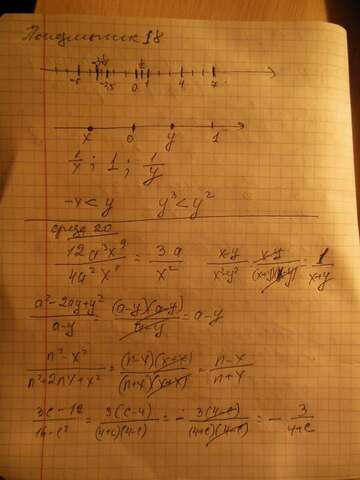 Понедельник 18
0 1 4 7
x 0 y 1
1/x ; 1 ; 1/y
-x < y y³ < y²
среда 20
12a³x⁹/4a²x¹¹ = 3a/x² x-y/x²-y² = x-y/(x+y)(x-y) = 1/x+y
a²-2ay+y²/a-y = (a-y)(a-y)/a-y = a-y
n²-x²/n²+2nx+x² = (n-x)(n+x)/(n+x)(n+x) = n-x/n+x
3c-12/16-c² = 3(c-4)/(4+c)(4-c) = - 3(4-c)/(4+c)(4-c) = - 3/4+c